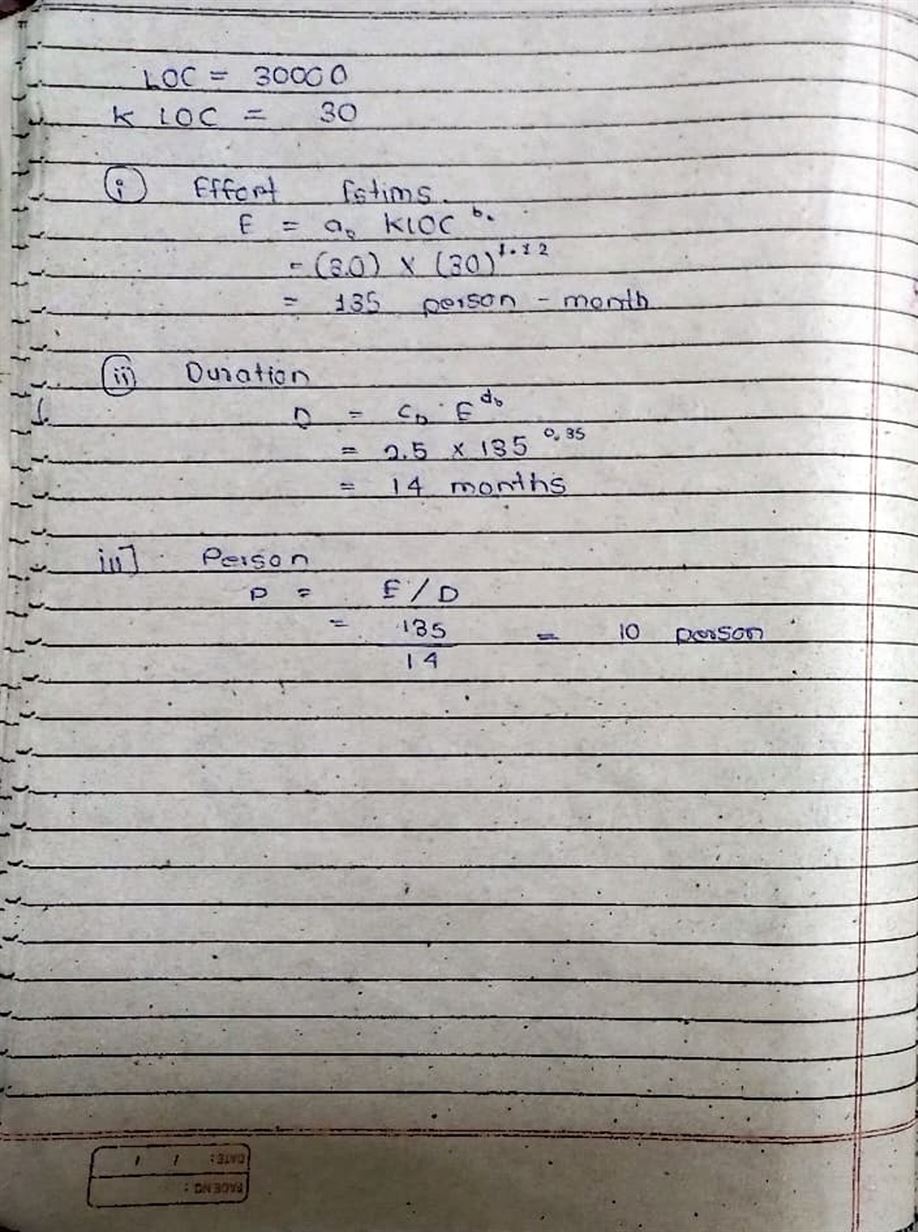 LOC = 30000
K LOC = 30
(i) Effort Estims.
E = a₀ KLOC ᵇ·
= (3.0) × (30)¹·¹²
= 135 person - month
(ii) Duration
D = C_D E^d₀
= 2.5 × 135 ⁰·³⁵
= 14 months
iii] Person
P = E / D
= 135 / 14 = 10 person
DATE: / /
PAGE NO: